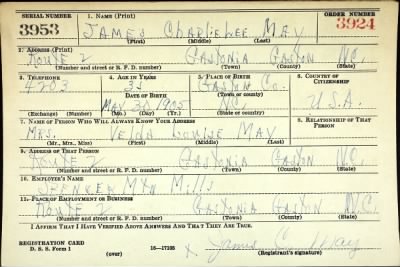 SERIAL NUMBER 1. NAME (Print) ORDER NUMBER
3953 JAMES CHARLIE LEE MAY 3924
(First) (Middle) (Last)
2. ADDRESS (Print)
ROUTE 2 GASTONIA GASTON N.C.
(Number and street or R. F. D. number) (Town) (County) (State)
3. TELEPHONE 4. AGE IN YEARS 5. PLACE OF BIRTH 6. COUNTRY OF CITIZENSHIP
4203 35 GASTON CO.
DATE OF BIRTH (Town or county)
MAY 30 1905 N.C. U.S.A.
(Exchange) (Number) (Mo.) (Day) (Yr.) (State or country)
7. NAME OF PERSON WHO WILL ALWAYS KNOW YOUR ADDRESS 8. RELATIONSHIP OF THAT PERSON
MRS. LOUISE MAY
(Mr., Mrs., Miss) (First) (Middle) (Last)
9. ADDRESS OF THAT PERSON
ROUTE 2 GASTONIA GASTON N.C.
(Number and street or R. F. D. number) (Town) (County) (State)
10. EMPLOYER'S NAME
SPENCER MTN MILLS
11. PLACE OF EMPLOYMENT OR BUSINESS
ROUTE 2 GASTONIA GASTON N.C.
(Number and street or R. F. D. number) (Town) (County) (State)
I AFFIRM THAT I HAVE VERIFIED ABOVE ANSWERS AND THAT THEY ARE TRUE.
REGISTRATION CARD
D. S. S. Form 1 16—17105 x James C. May
(over) (Registrant's signature)